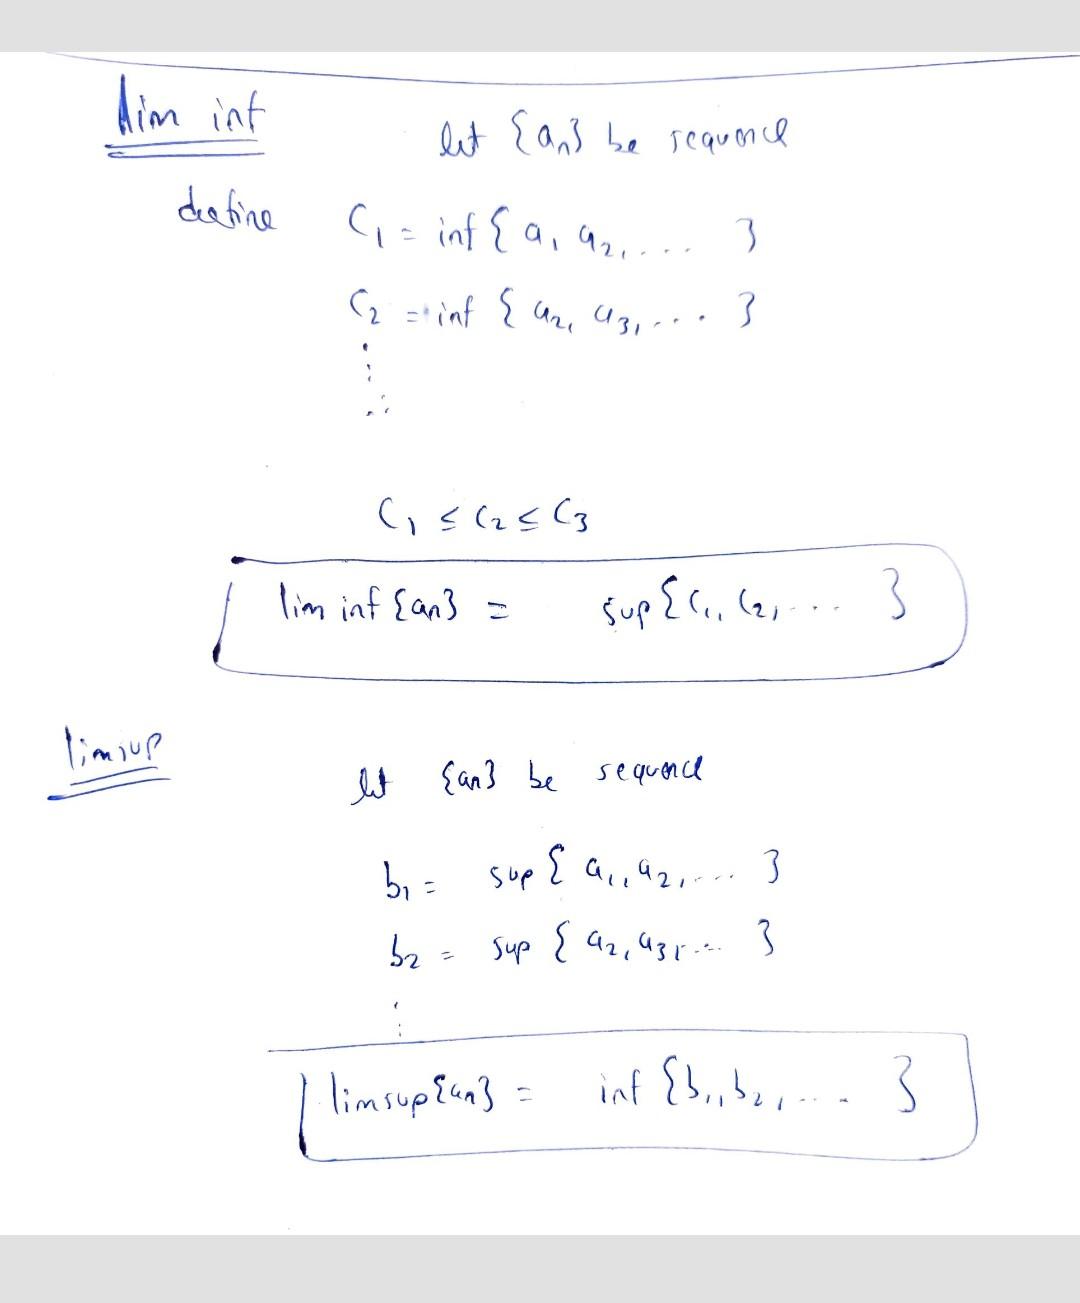 lim inf
let {an} be sequence
define C1 = inf { a1 a2, .... }
C2 = inf { a2, a3, .... }
C1 ≤ C2 ≤ C3
lim inf {an} = sup { C1, C2, .... }
limsup
let {an} be sequence
b1 = sup { a1, a2, .... }
b2 = sup { a2, a3, .... }
limsup{an} = inf {b1, b2, .... }